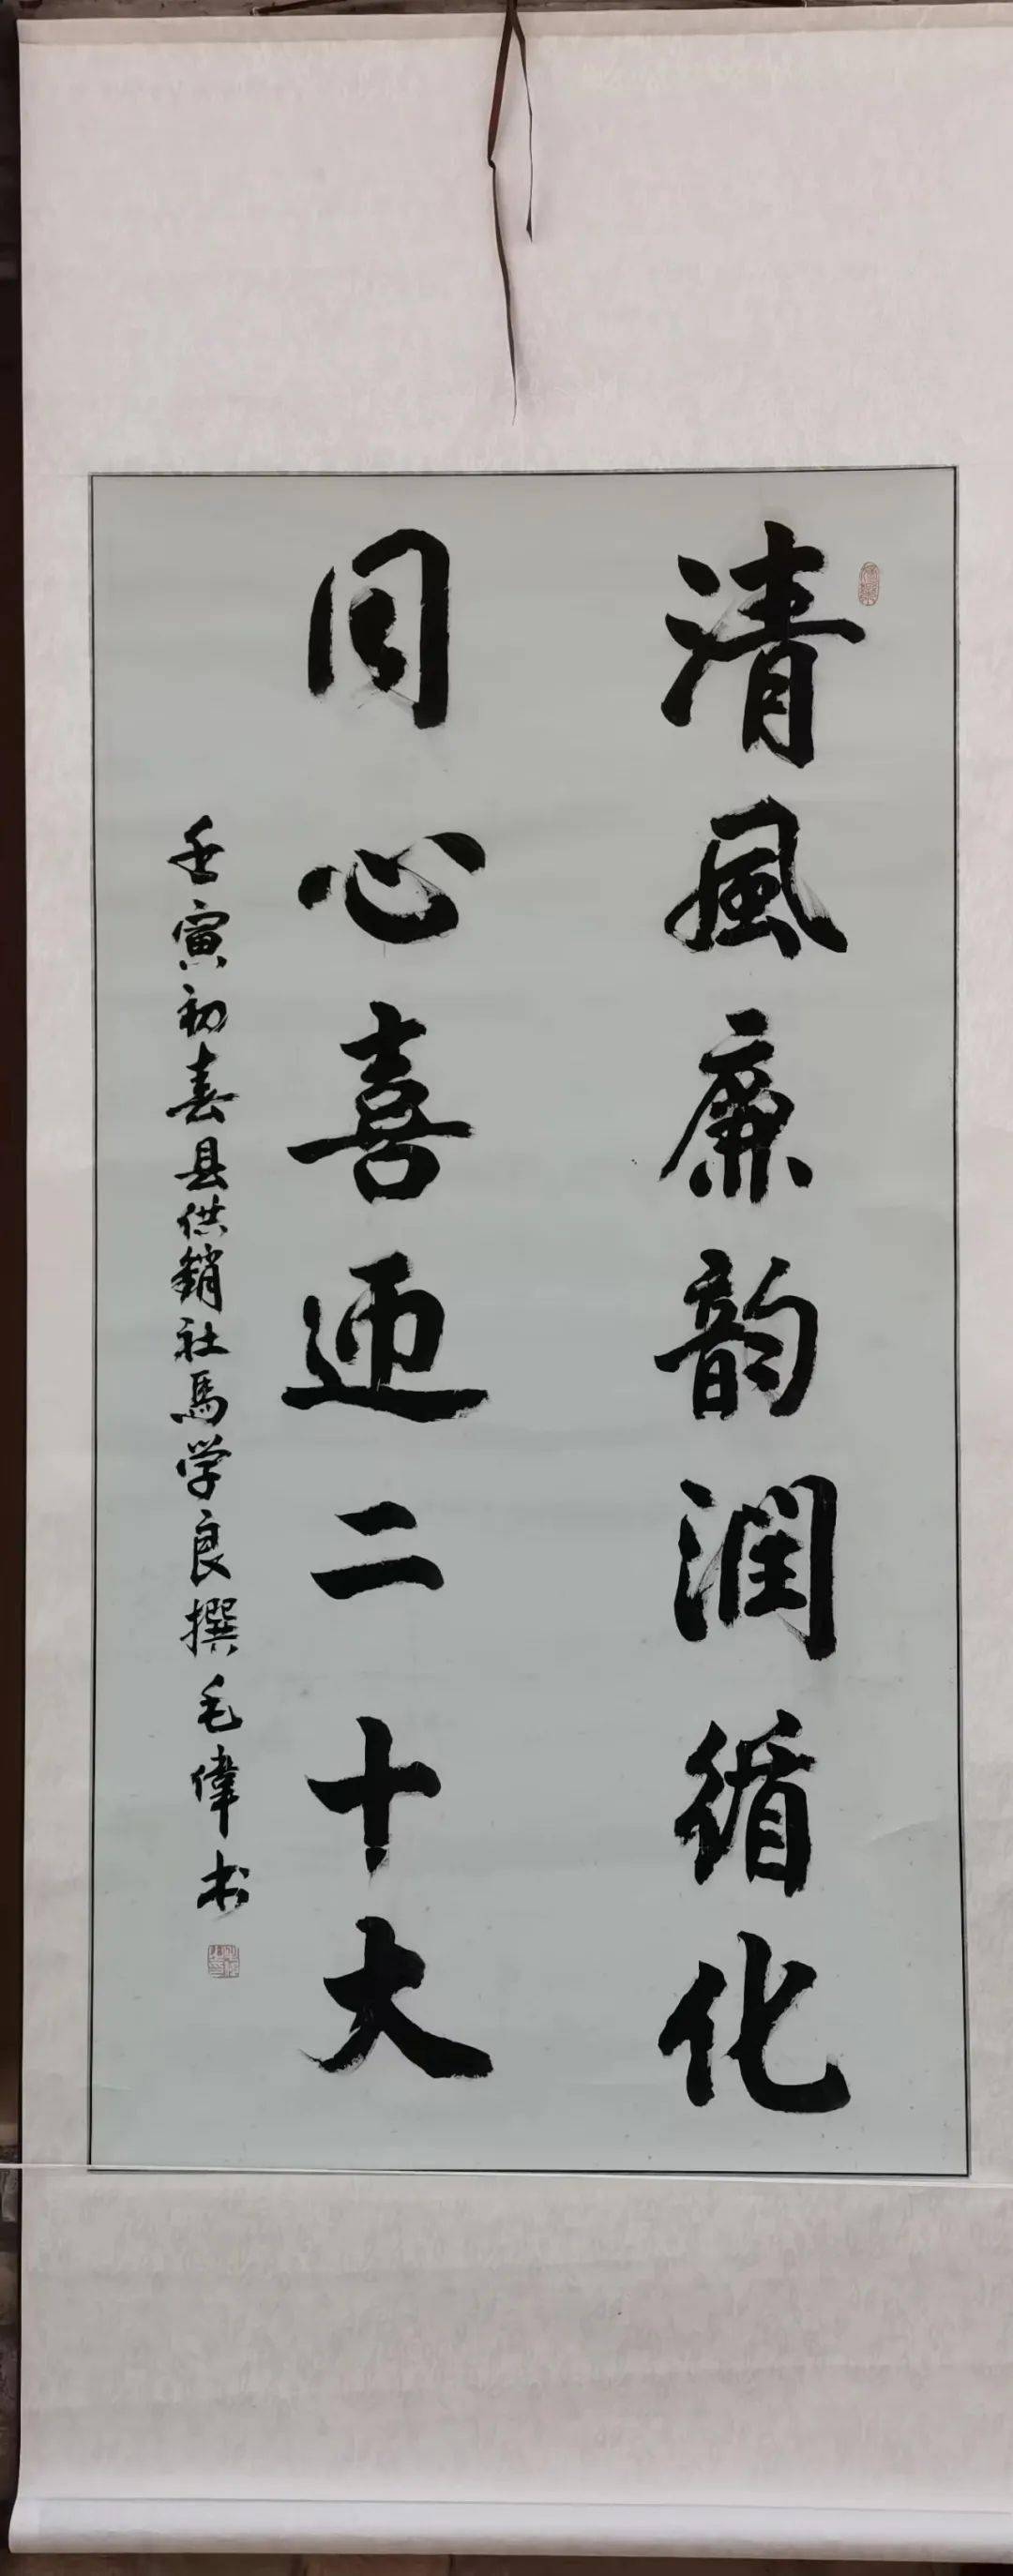 清風廉韵润循化
同心喜迊二十大
壬寅初春县供銷社馬学良撰毛偉书